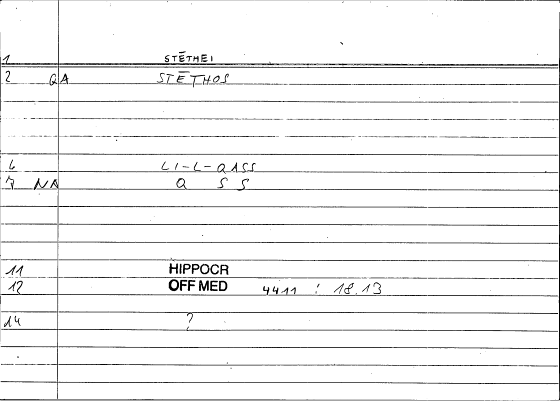 1 STĒTHEI
2 QA STĒTHOS
6 LI-L-QASS
7 NA Q S S
11 HIPPOCR
12 OFF MED 4411 : 18.13
14 ?